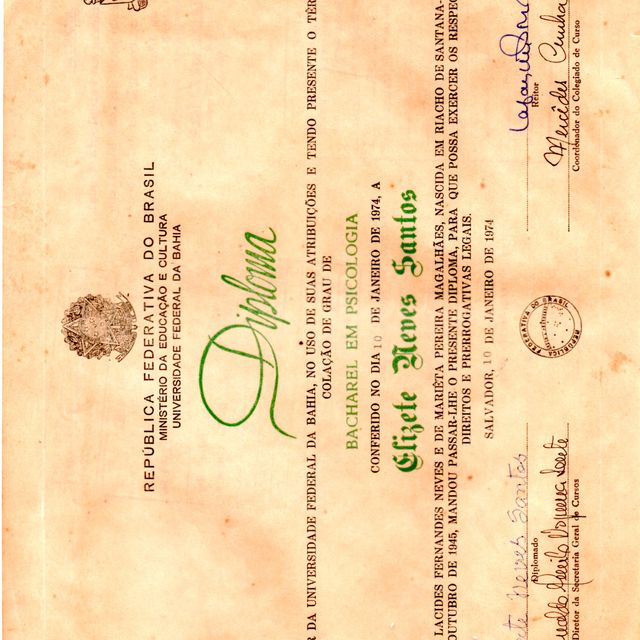 REPÚBLICA FEDERATIVA DO BRASIL
MINISTÉRIO DA EDUCAÇÃO E CULTURA
UNIVERSIDADE FEDERAL DA BAHIA
Diploma
R DA UNIVERSIDADE FEDERAL DA BAHIA, NO USO DE SUAS ATRIBUIÇÕES E TENDO PRESENTE O TÉR
COLAÇÃO DE GRAU DE
BACHAREL EM PSICOLOGIA
CONFERIDO NO DIA 10 DE JANEIRO DE 1974, A
Elizete Neves Santos
LACIDES FERNANDES NEVES E DE MARIÊTA PEREIRA MAGALHÃES, NASCIDA EM RIACHO DE SANTANA-
OUTUBRO DE 1945, MANDOU PASSAR-LHE O PRESENTE DIPLOMA, PARA QUE POSSA EXERCER OS RESPEC
DIREITOS E PRERROGATIVAS LEGAIS.
SALVADOR, 10 DE JANEIRO DE 1974
ete Neves Santos
Diplomado
Reitor
REPÚBLICA FEDERATIVA DO BRASIL
Diretor da Secretaria Geral de Cursos
Mercedes Cunha
Coordenador do Colegiado de Curso